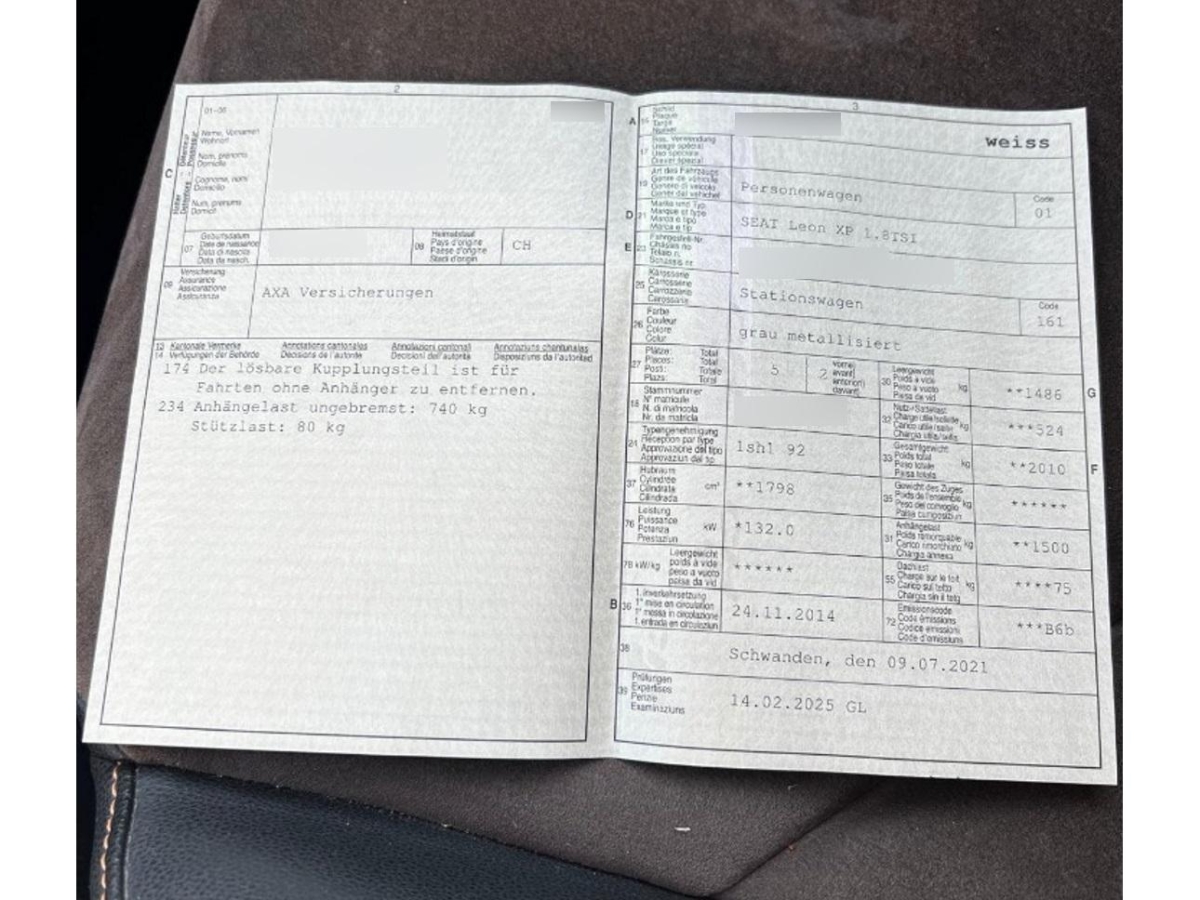 2
01-06
C
Halter
Détenteur
Detentore
Possessur
Name, Vornamen
Wohnort
Nom, prénoms
Domicile
Cognome, nomi
Domicilio
Num, prenoms
Domicil
07
Geburtsdatum
Date de naissance
Data di nascita
Data da nasch.
08
Heimatstaat
Pays d'origine
Paese d'origine
Stadi d'origin
CH
09
Versicherung
Assurance
Assicurazione
Assicuranza
AXA Versicherungen
13 Kantonale Vermerke Annotations cantonales Annotazioni cantonali Annotaziuns chantunalas
14 Verfügungen der Behörde Décisions de l'autorité Decisioni dell'autorità Disposiziuns da l'autoritad
174 Der lösbare Kupplungsteil ist für
Fahrten ohne Anhänger zu entfernen.
234 Anhängelast ungebremst: 740 kg
Stützlast: 80 kg
3
A 15
Schild
Plaque
Targa
Numer
weiss
17
Bes. Verwendung
Usage spécial
Uso speciale
Diever spezial
19
Art des Fahrzeugs
Genre de véhicule
Genere di veicolo
Gener dal vehichel
Personenwagen
Code
01
D 21
Marke und Typ
Marque et type
Marca e tipo
Marca e tip
SEAT Leon XP 1.8TSI
E 23
Fahrgestell-Nr.
Châssis no
Telaio n.
Schassis nr.
25
Karosserie
Carrosserie
Carrozzeria
Carossaria
Stationswagen
Code
161
26
Farbe
Couleur
Colore
Colur
grau metallisiert
27
Plätze: Total
Places: Total
Posti: Totale
Plazs: Total
5
2
vorne)
avant)
anteriori)
davant)
30
Leergewicht
Poids à vide
Peso a vuoto
Paisa da vid
kg
**1486
G
18
Stammnummer
N° matricule
N. di matricola
Nr. da matricla
32
Nutz-/Sattellast
Charge utile/sellette
Carico utile/sella
Chargia utila/sella
kg
***524
24
Typengenehmigung
Réception par type
Approvazione del tipo
Approvaziun dal tip
1sh1 92
33
Gesamtgewicht
Poids total
Peso totale
Paisa totala
kg
**2010
F
37
Hubraum
Cylindrée
Cilindrata
Cilindrada
cm³
**1798
35
Gewicht des Zuges
Poids de l'ensemble
Peso del convoglio
Paisa cumposiziun
kg
******
76
Leistung
Puissance
Potenza
Prestaziun
kW
*132.0
31
Anhängelast
Poids remorquable
Carico rimorchiato
Chargia annexa
kg
**1500
78 kW/kg
Leergewicht
poids à vide
peso a vuoto
paisa da vid
******
55
Dachlast
Charge sur le toit
Carico sul tetto
Chargia sin il tetg
kg
****75
B 36
1. Inverkehrsetzung
1re mise en circulation
1a messa in circolazione
1. entrada en circulaziun
24.11.2014
72
Emissionscode
Code émissions
Codice emissioni
Code d'emissiuns
***B6b
38
Schwanden, den 09.07.2021
39
Prüfungen
Expertises
Perizie
Examinaziuns
14.02.2025 GL